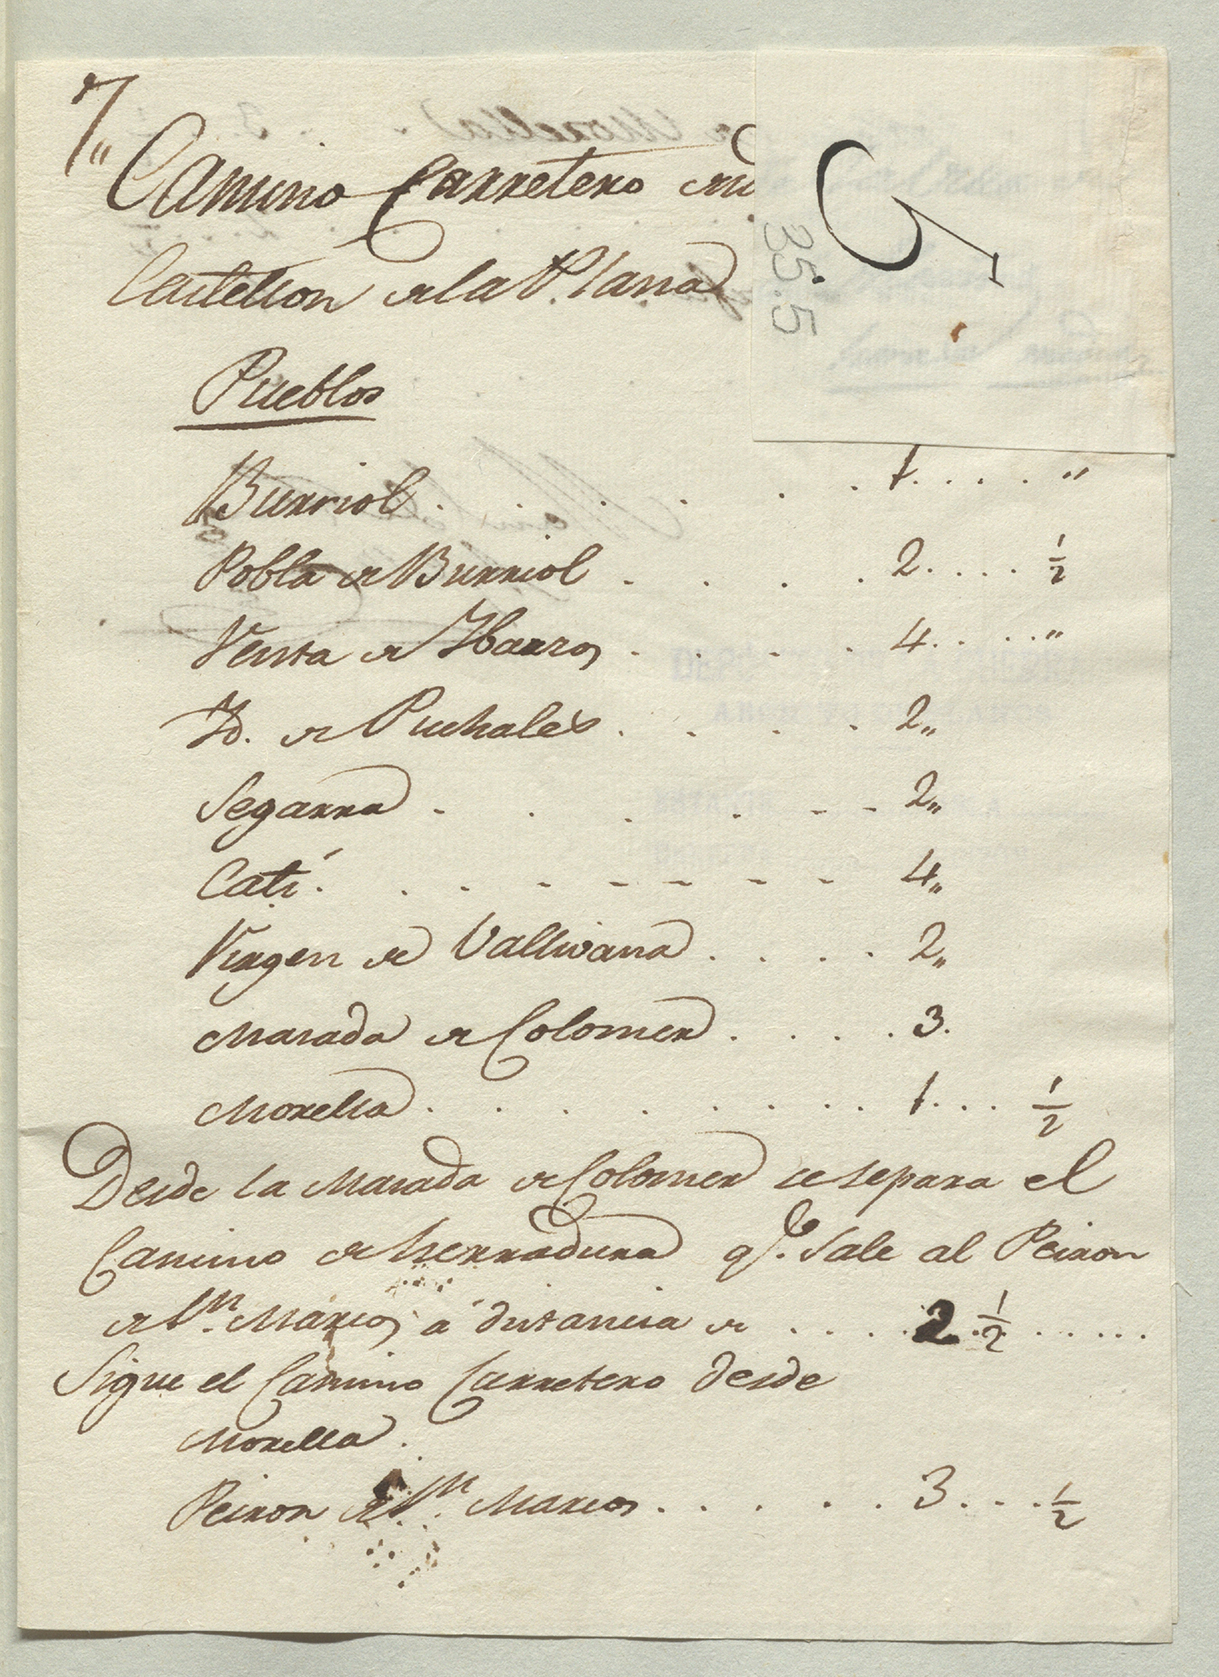 7"
Camino Carretero
Castellon de la Plana
5
35.5
Pueblos
Burriol . . . . . . 1. . . . . "
Pobla de Burriol . . . . 2. . . . . 1/2
Venta de Ibarzos . . . . 4. . . . "
Yd. de Puchales . . . . 2"
Segarra - . . . . - - 2"
Catí. . . - - - - - 4"
Virgen de Vallivana . . . . 2"
Masada de Colomer . . . . 3.
Morella . . . . . . . . 1. . . . 1/2
Desde la Masada de Colomer se separa el
Camino de herradura qe. sale al Peiron
de Sn. Marcos á distancia de . . . . 2 1/2 . . . . .
Sigue el Camino Carretero desde
Morella.
Peiron de Sn. Marcos . . . . . 3. . . . 1/2